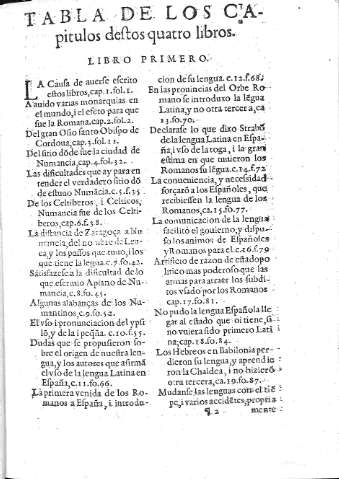 TABLA DE LOS CA-
pitulos destos quatro libros.
LIBRO PRIMERO.
LA Causa de auerse escrito
estos libros, cap.1. fol.1.
A auido varias monarquias en
el mundo, i el esero para que
fue la Romana. cap.2. fol.2.
Del gran Osio santo Obispo de
Cordoua, cap.3. fol.11.
Del sitio dõde fue la ciudad de
Numancia, cap.4. fol.32.
Las dificultades que ay para en
tender el verdadero sitio dõ
de estuuo Numãcia. c.5. f.35
De los Celtiberos, i Celticos,
Numancia fue de los Celti-
beros, cap.6. f.38.
La distancia de Zaragoça a Nu
mancia, del nombre de Len-
ca, y los passos que tuuo, i los
que tiene la legua. c.7. fo.42.
Satisfazese a la dificultad de lo
que escriuio Apiano de Nu-
mancia, c.8. fo.45.
Algunas alabanças de los Nu-
mantinos, c.9. fo.52.
El vso i pronunciacion del ypsi
lõ, y de la i peqña. c.10. f.55.
Dudas que se propusieron so-
bre el origen de nuestra len-
gua, y los autores que afirmã
el vso de la lengua Latina en
España, c.11. fo.66.
La primera venida de los Ro-
manos a España, i introdu-
cion de su lengua. c.12. f.68.
En las prouincias del Orbe Ro
mano se introduxo la lẽgua
Latina, y no otra tercera, ca
13. fo.70.
Declarase lo que dixo Strabõ
de la lengua Latina en Espa-
ña, i vso de la toga, i la gran
estima en que tuuieron los
Romanos su lẽgua. c.14. f.72
La conueniencia, y necessidad
forçarõ a los Españoles, que
recibiessen la lengua de los
Romanos, ca.15. fo.77.
La comunicacion de la lengua
facilitó el gouierno, y dispu-
so los animos de Españoles
y Romanos para el. c.16. f.79
Artificio de razon de estado po
litico mas poderoso que las
armas para atraer los subdi-
tos vsado por los Romanos
cap.17. fo.81.
No pudo la lengua Española lle
gar al estado que oi tiene, si
no vuiera sido primero Lati
na, cap.18. fo.84.
Los Hebreos en Babilonia per-
dieron su lengua, y aprendie
ron la Chaldea, i no hizierõ
otra tercera, ca.19. fo.87.
Mudanse las lenguas con el tiẽ
po, i varios accidẽtes, propria
¶ 2 mente